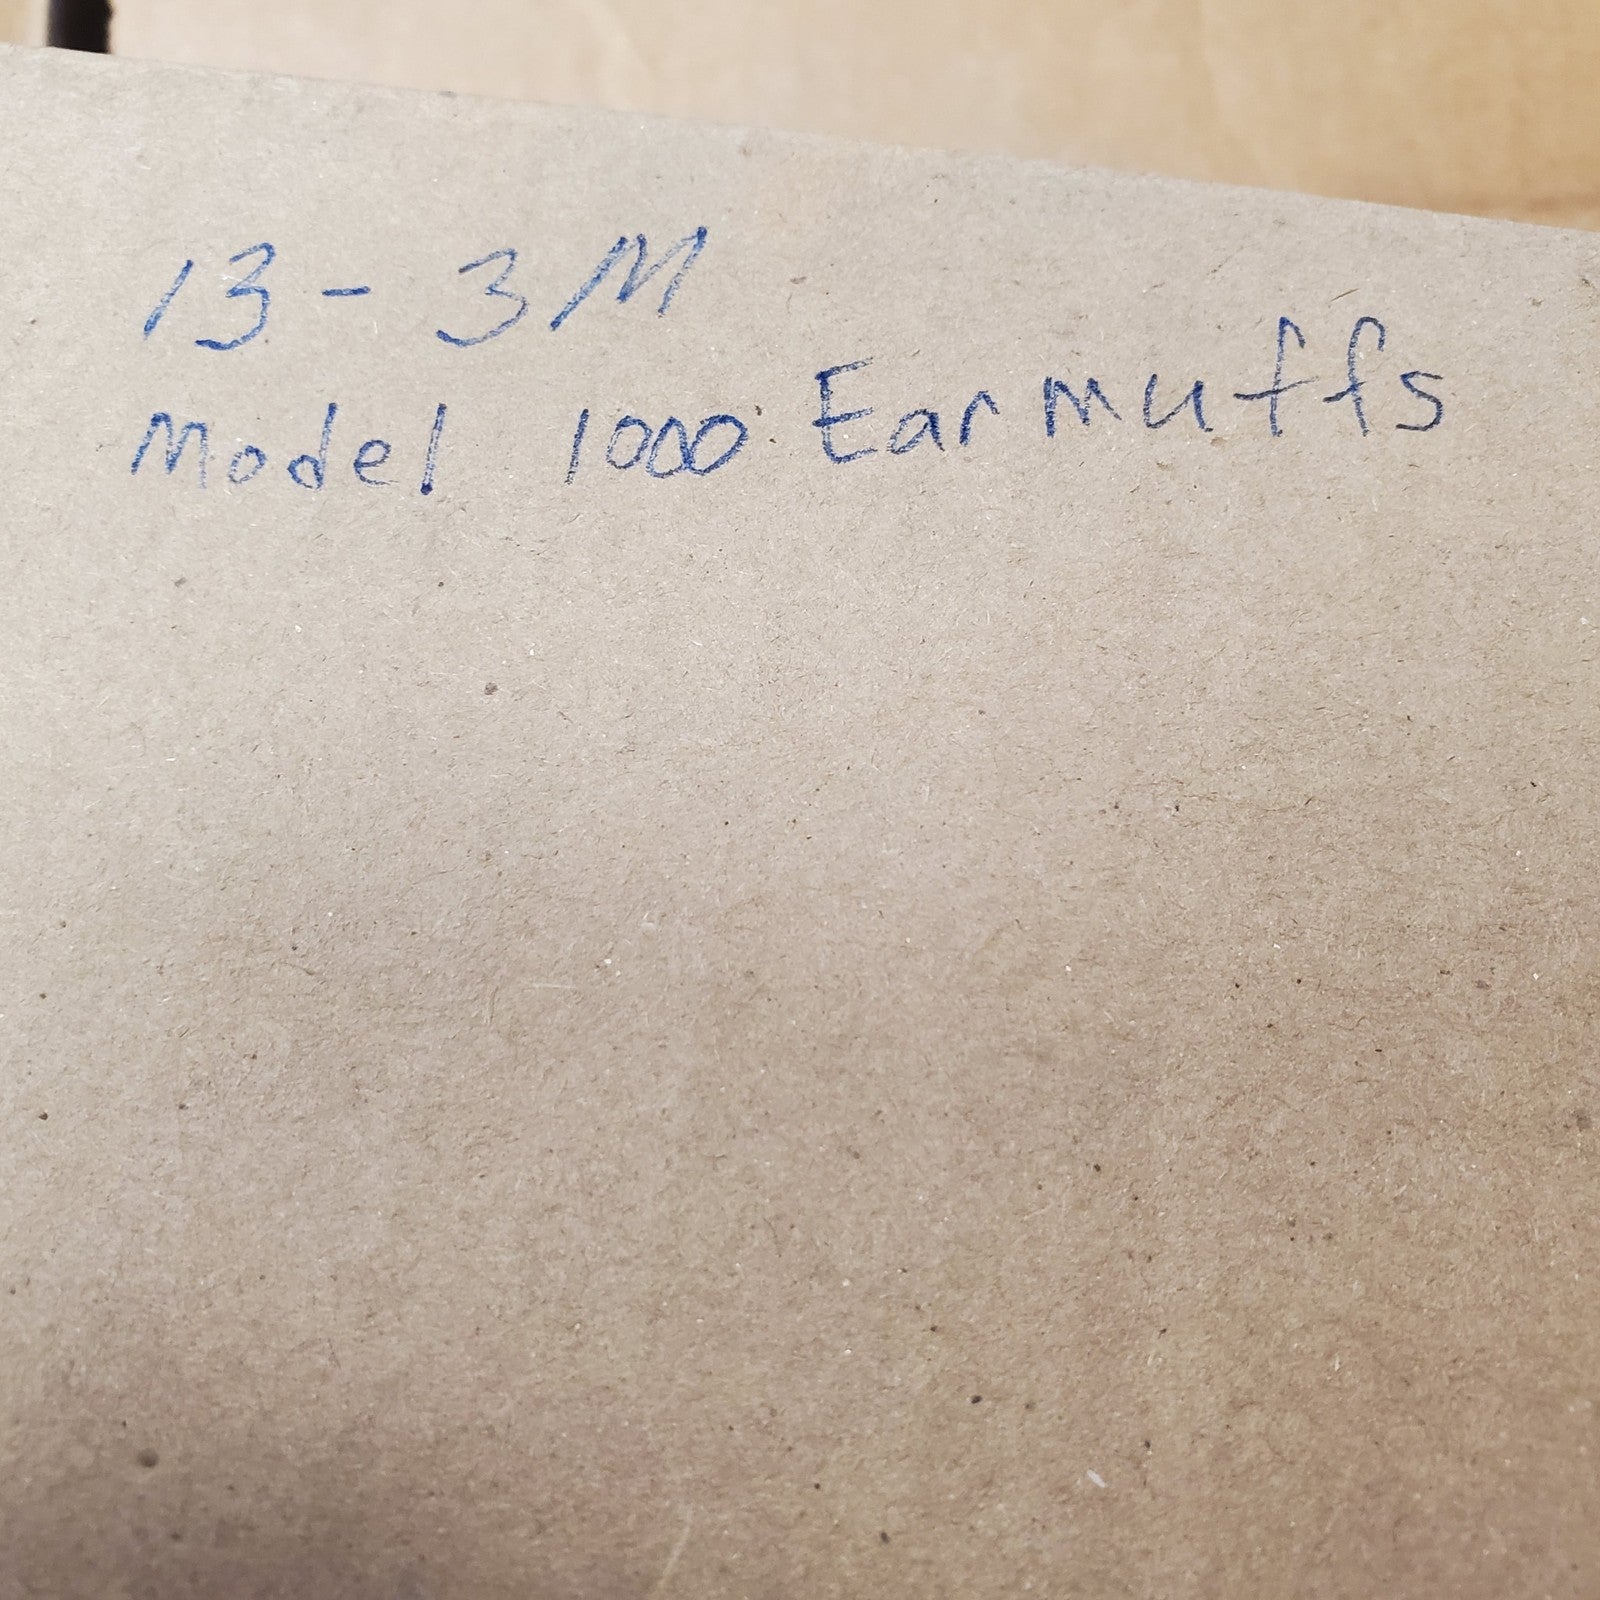 13 - 3M
Model 1000 Earmuffs